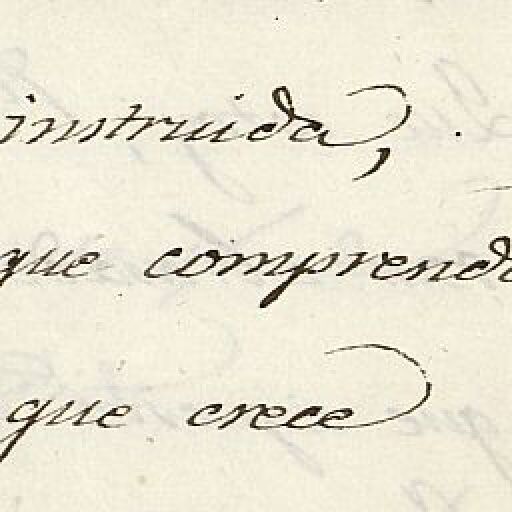 instruida,
que comprenda
que crece